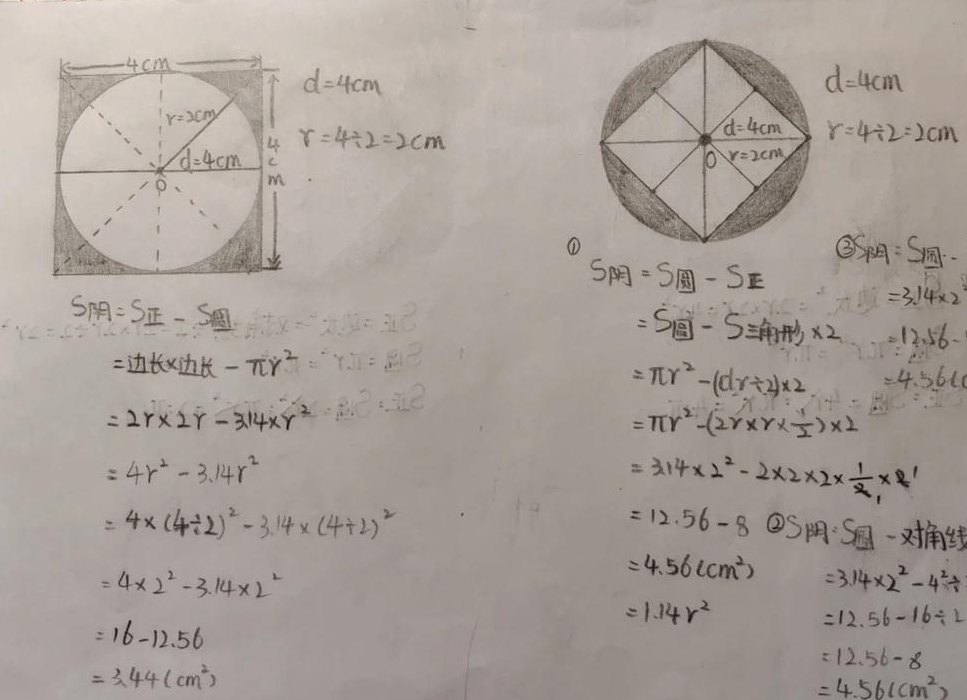 4cm
r=2cm
d=4cm
O
4cm
d=4cm
r=4÷2=2cm
S阴=S正-S圆
=边长×边长-πr²
=2r×2r-3.14×r²
=4r²-3.14r²
=4×(4÷2)²-3.14×(4÷2)²
=4×2²-3.14×2²
=16-12.56
=3.44(cm²)
d=4cm
O
r=2cm
d=4cm
r=4÷2=2cm
①
S阴=S圆-S正
=S圆-S三角形×2
=πr²-(dr÷2)×2
=πr²-(2r×r×1/2)×2
=3.14×2²-2×2×2×1/2×2
=12.56-8
=4.56(cm²)
=1.14r²
②S阴=S圆-对角线
=3.14×2²-4²÷
=12.56-16÷2
=12.56-8
=4.56(cm²)
③S阴=S圆-
=3.14×2²
=12.56-
=4.56(c